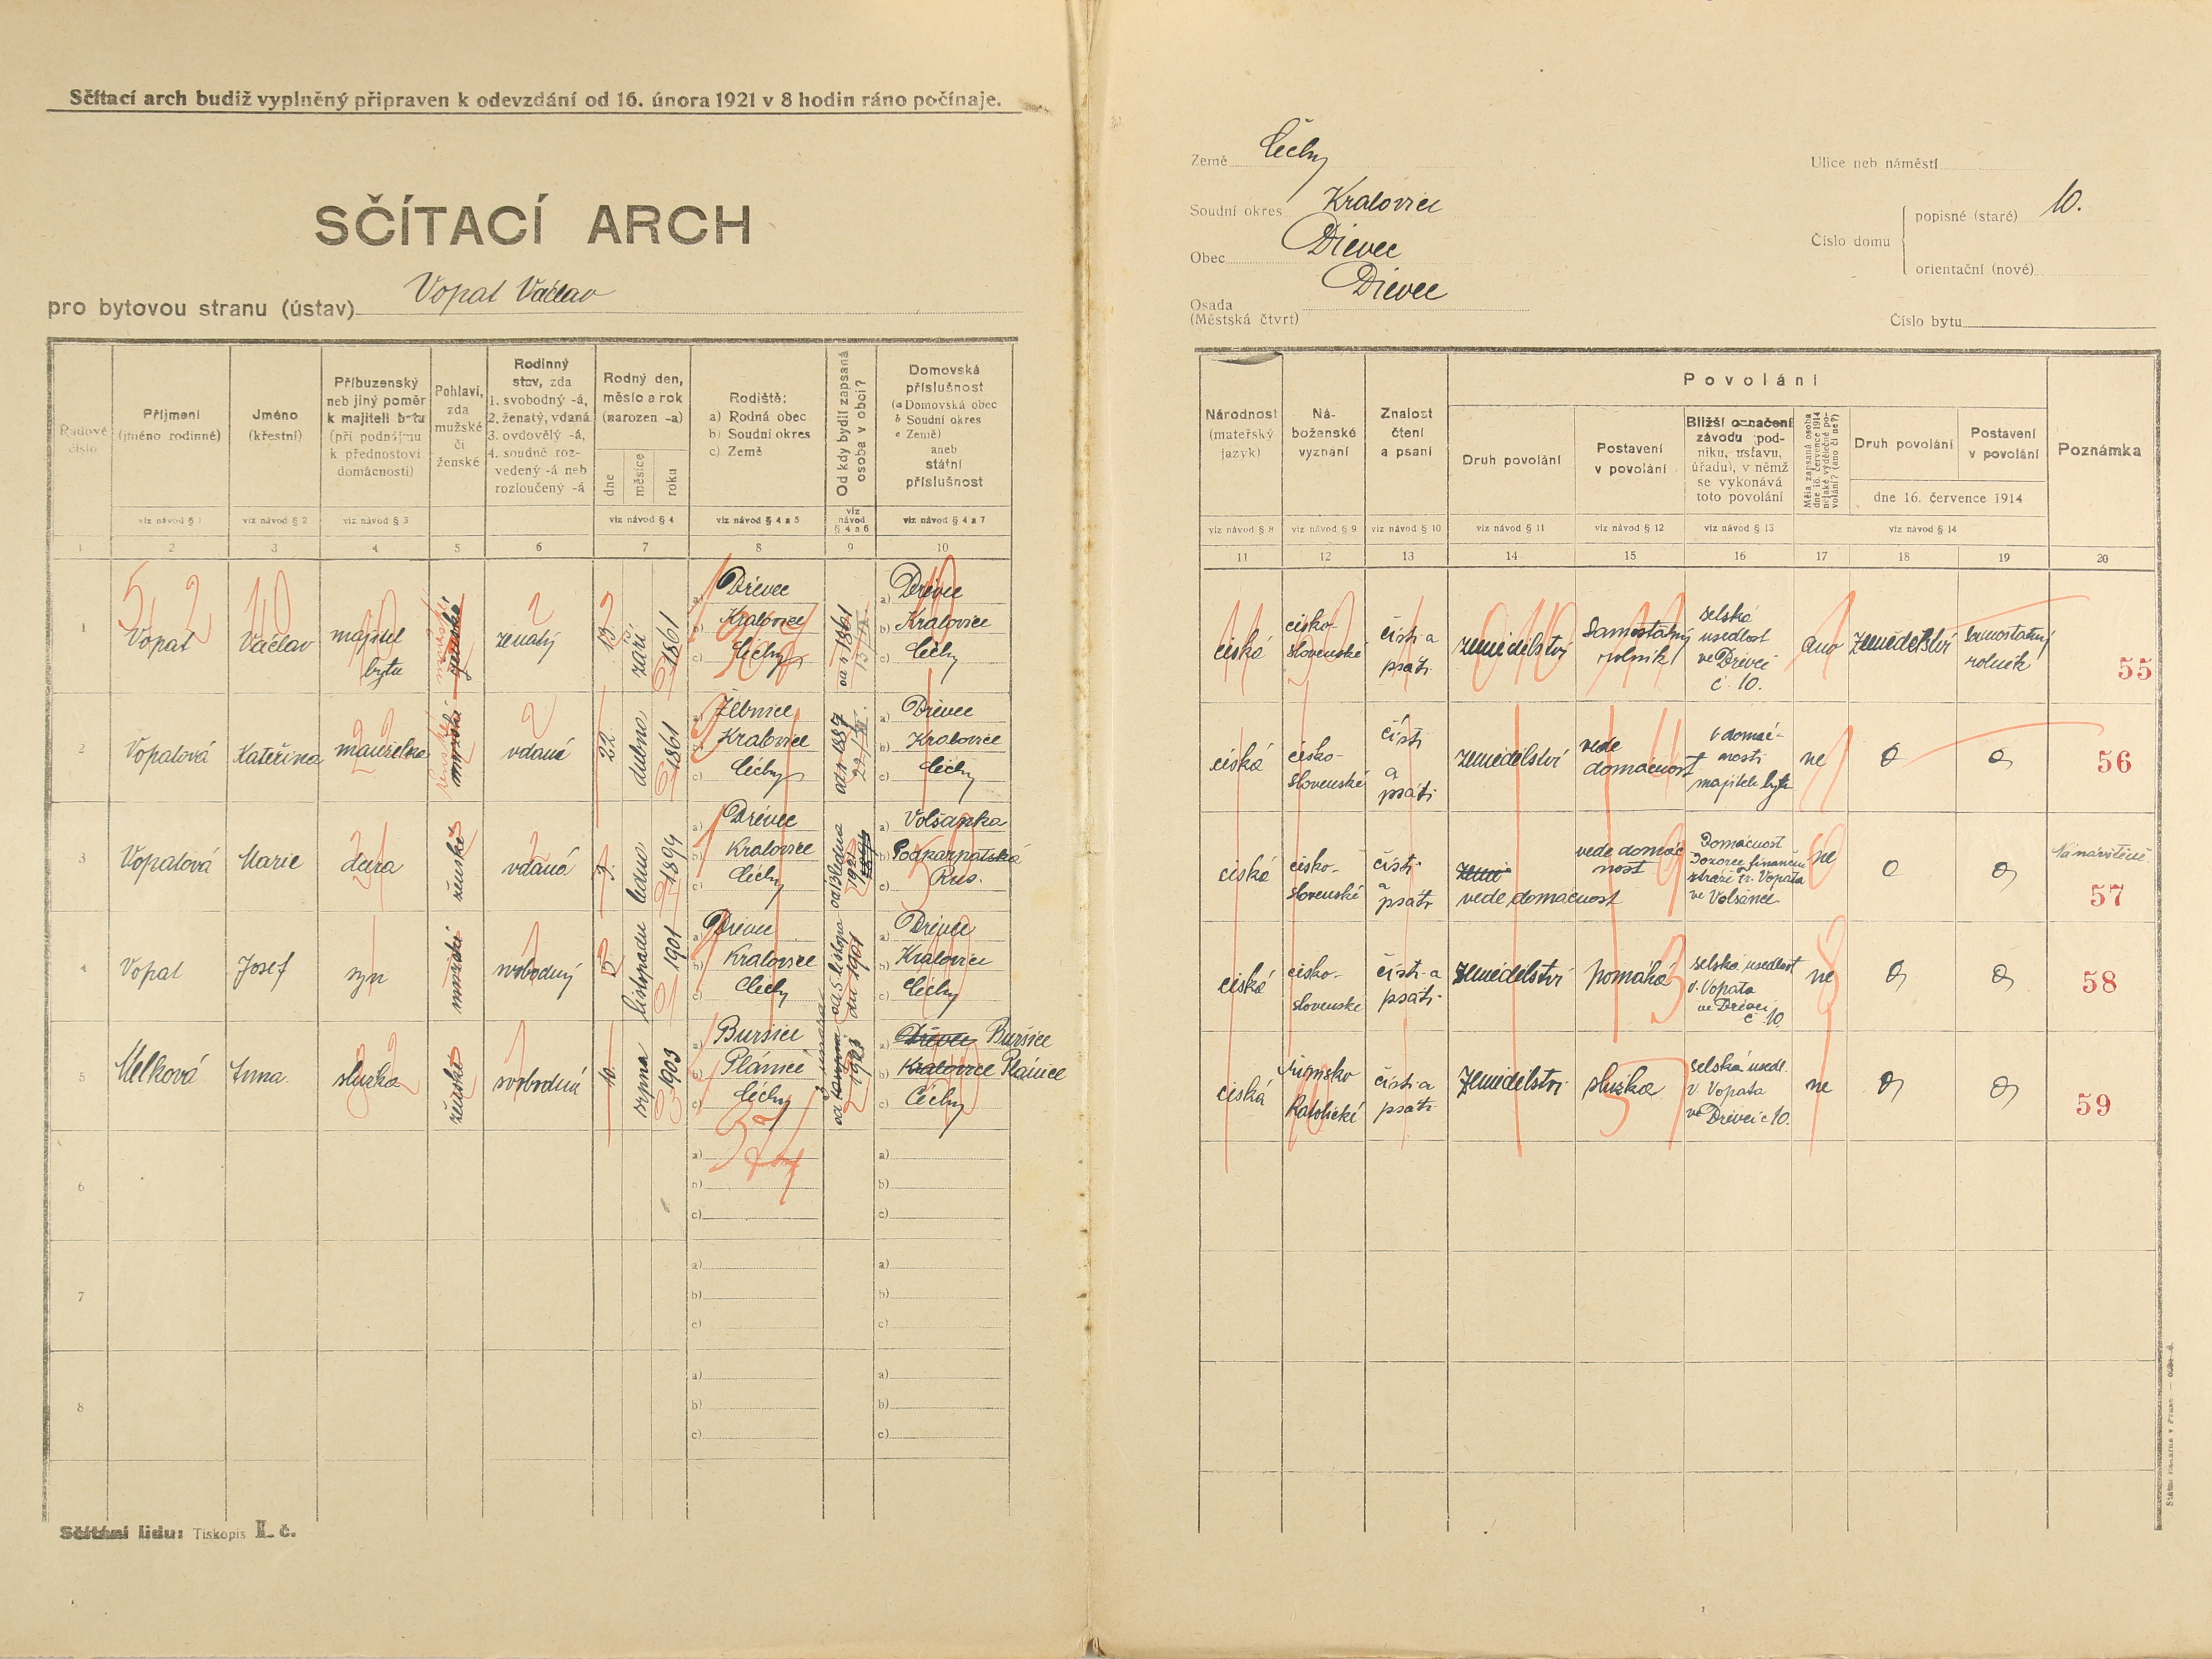 Sčítací arch budiž vyplněný připraven k odevzdání od 16. února 1921 v 8 hodin ráno počínaje.
SČÍTACÍ ARCH
pro bytovou stranu (ústav) Vopat Václav
Řadové číslo
Příjmení (jméno rodinné)
Jméno (křestní)
Příbuzenský neb jiný poměr k majiteli bytu (při podnájmu k přednostovi domácnosti)
Pohlaví, zda mužské či ženské
Rodinný stav, zda 1. svobodný -á, 2. ženatý, vdaná 3. ovdovělý -á, 4. soudně rozvedený -á neb rozloučený -á
Rodný den, měsíc a rok (narozen -a)
dne měsíce roku
Rodiště: a) Rodná obec b) Soudní okres c) Země
Od kdy bydlí zapsaná osoba v obci?
Domovská příslušnost (a Domovská obec b Soudní okres c Země) aneb státní příslušnost
viz návod § 1 viz návod § 2 viz návod § 3 viz návod § 4 viz návod § 4 a 5 viz návod § 4 a 6 viz návod § 4 a 7
1 2 3 4 5 6 7 8 9 10
1 Vopat Václav majitel bytu ženské ženatý 13 září 1861
a) Dřevec b) Kralovice c) Čechy
od r 1861 13/IX
a) Dřevec b) Kralovice c) Čechy
2 Vopatová Kateřina manželka mužské vdaná 22 dubna 1861
a) Žebnice b) Kralovice c) Čechy
od r 1887
a) Dřevec b) Kralovice c) Čechy
3 Vopatová Marie dcera ženské vdaná 9. ledna 1894
a) Dřevec b) Kralovice c) Čechy
1921
a) Volšanka b) Podkarpatská c) Rus.
4 Vopat Josef syn mužské svobodný 5 listopadu 1901
a) Dřevec b) Kralovice c) Čechy
od 5. listopadu 1901
a) Dřevec b) Kralovice c) Čechy
5 Melková Anna služka ženské svobodná 10. srpna 1903
a) Buršice b) Plánice c) Čechy
února 1921
a) Dřevec Buršice b) Kralovice Plánice c) Čechy
6 a) b) c) a) b) c)
7 a) b) c) a) b) c)
8 a) b) c) a) b) c)
Sčítání lidu: Tiskopis II. č.
Země Čechy
Soudní okres Kralovice
Obec Dřevec
Osada (Městská čtvrt) Dřevec
Ulice neb náměstí
Číslo domu
popisné (staré) 10.
orientační (nové)
Číslo bytu
Národnost (mateřský jazyk)
Náboženské vyznání
Znalost čtení a psaní
Povolání
Druh povolání
Postavení v povolání
Bližší označení závodu (podniku, ústavu, úřadu), v němž se vykonává toto povolání
Měla zapsaná osoba dne 16. července 1914 nějaké výdělečné povolání? (ano či ne?)
Druh povolání
Postavení v povolání
dne 16. července 1914
Poznámka
viz návod § 8 viz návod § 9 viz návod § 10 viz návod § 11 viz návod § 12 viz návod § 13 viz návod § 14
11 12 13 14 15 16 17 18 19 20
česká česko-slovenské čísti a psáti zemědělství samostatný rolník selská usedlost ve Dřevci č 10. ano Zemědělství samostatný rolník 55
česká česko-slovenské čísti a psáti zemědělství vede domácnost v domácnosti majitele bytu ne 0 0 56
česká česko-slovenské čísti a psáti země vede domácnost vede domácnost Domácnost Dozorce finanční stráže Fr. Vopata ve Volšance ne 0 0 Na návštěvě 57
česká česko-slovenské čísti a psáti Zemědělství pomáhá selská usedlost V. Vopata ve Dřevci č 10. ne 0 0 58
česká římsko katolické čísti a psáti Zemědělství služka selská used. V. Vopata ve Dřevci č 10. ne 0 0 59